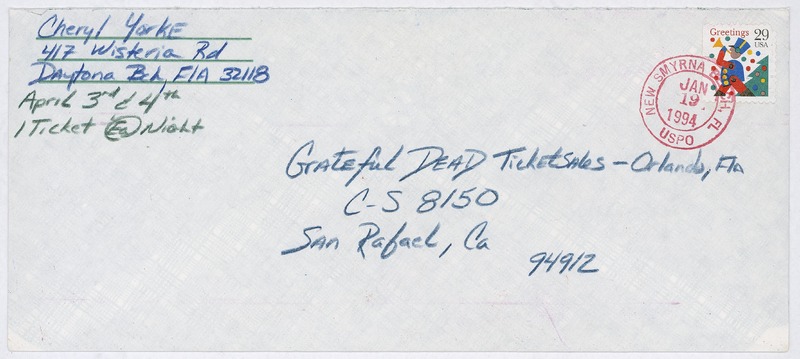 Cheryl Yorke
417 Wisteria Rd
Daytona Bch, FlA 32118
April 3rd & 4th
1 Ticket Ea Night
Greetings 29
USA
NEW SMYRNA BCH, FL
JAN
19
1994
USPO
Grateful Dead Ticket Sales - Orlando, Fla
C-S 8150
San Rafael, Ca
94912